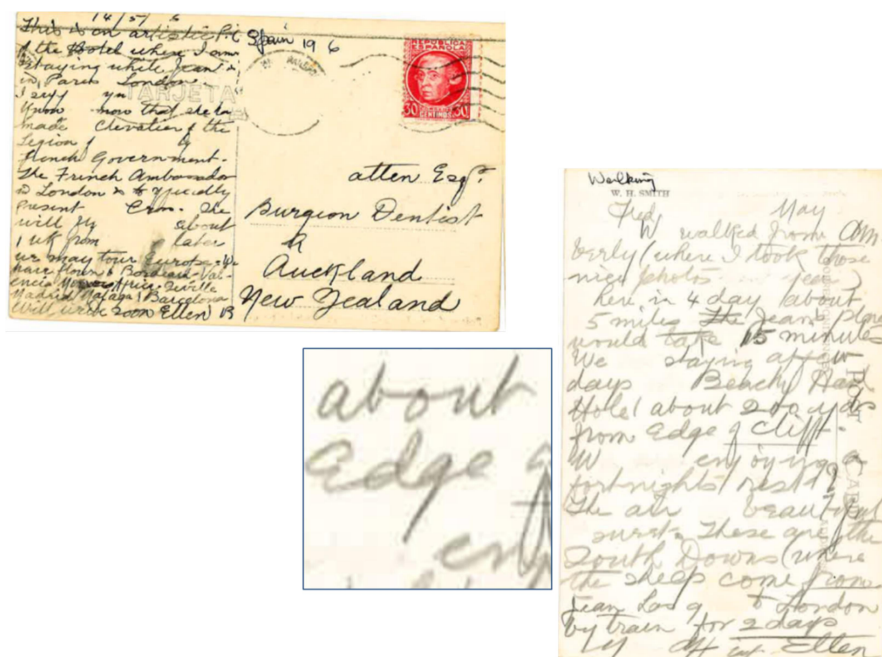 14/5/ 6
This is an artistic P.C
of the Hotel where I am
staying while Jean is
in Paris London.
I
know now that she has
made Chevalier of the
Legion of by
French Government.
The French Ambassador
in London is to specially
present Cross. She
will fly about
from later
we may tour Europe. We
have flown to Bordeaux-Val-
encia Seville
Madrid Malaga Barcelona
Will write soon Ellen B
Spain 19 6
TARJETA
REPUBLICA ESPAÑOLA
30 CENTIMOS 30
atten Esqr.
Surgeon Dentist
Auckland
New Zealand
Walking
W. H. SMITH
Fred, May
W walked from Am
berly (where I took those
nice photos year)
here in 4 day about
5 miles The Jean's plane
would take 15 minutes
We staying a few
days Beachy Head
Hotel about 200 yds
from edge of cliff.
W enjoying a
fortnights rest
The air beautiful
These are the
South Downs (where
the sheep come from
Jean has g to London
by train for 2 days
Ellen
POST CARD
about
Edge of
enj